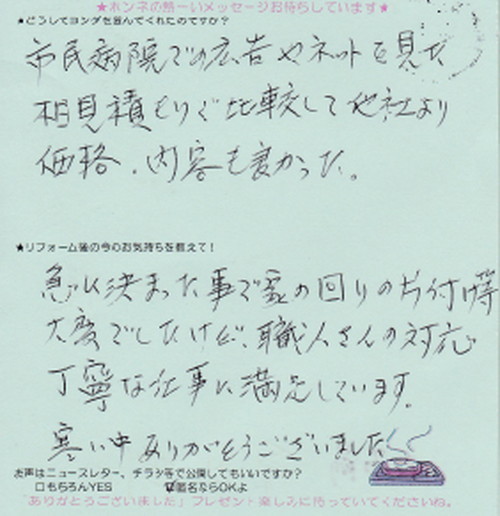 ★ホンネの熱ーいメッセージお待ちしています★
★どうしてヨシダを選んでくれたのですか？
市民病院での広告やネットを見た
相見積もりで比較して他社より
価格、内容も良かった。
★リフォーム後の今のお気持ちを教えて！
急に決まった事で家の回りの片付け等
大変でしたけど、職人さんの対応
丁寧な仕事に満足しています。
寒い中ありがとうございました
お声はニュースレター、チラシ等で公開してもいいですか？
□もちろんYES 匿名ならOKよ
ありがとうございました」プレゼント楽しみに待っていてくださいね。